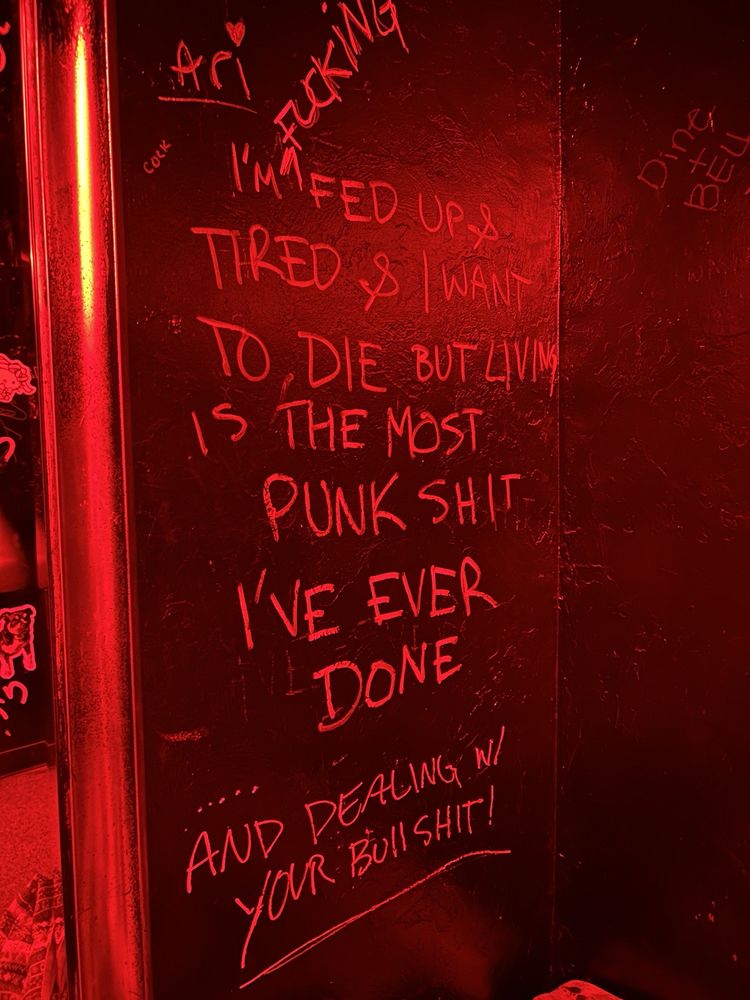 Ari
FUCKING
COCK
I'M FED UP &
TIRED & I WANT
TO DIE BUT LIVING
IS THE MOST
PUNK SHIT
I'VE EVER
DONE
.....
AND DEALING W/
YOUR BullSHIT!
Dine
+
BELL